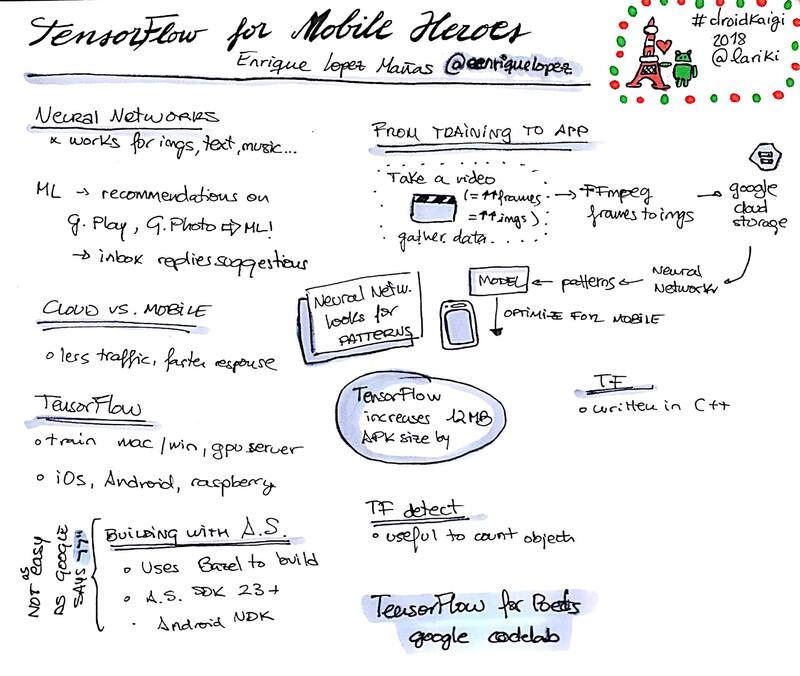 TensorFlow for Mobile Heroes
Enrique Lopez Mañas @eenriquelopez
#droidkaigi
2018
@lariki
Neural Networks
* works for imgs, text, music...
ML → recommendations on
g. Play, G. Photo ⇨ ML!
→ inbox replies suggestions
Cloud vs. Mobile
o less traffic, faster response
TensorFlow
o train mac/win, gpu server
o iOs, Android, raspberry
NOT as easy
as Google
says
Building with A.S.
o Uses Bazel to build
o A.S. SDK 23+
. Android NDK
From training to app
Take a video
(= ↑↑ frames
= ↑↑ imgs)
gather data
→ FFmpeg
frames to imgs
→ google
cloud
storage
Neural
Networks
← patterns
← MODEL
↓ OPTIMIZE FOR MOBILE
Neural Netw.
looks for
PATTERNS
TensorFlow
increases 12MB
APK size by
TF
o written in C++
TF detect
o useful to count objects
TensorFlow for Poets
google codelab